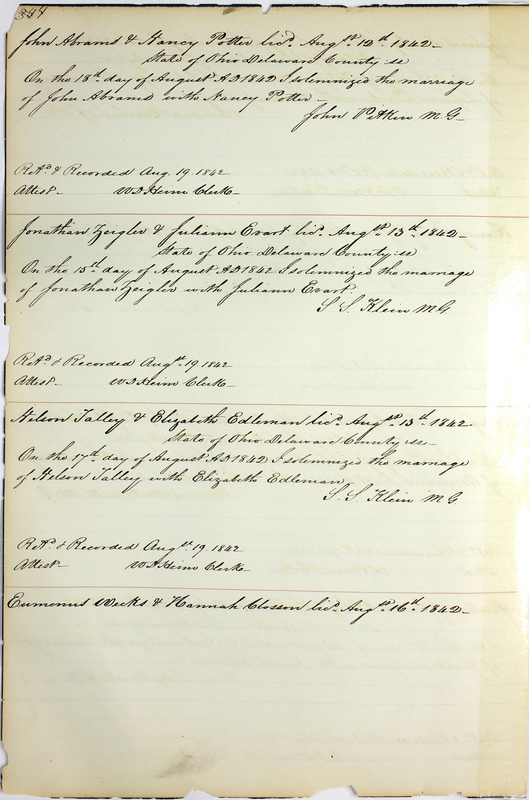 344
John Abrams & Nancy Potter licd. Augst. 12th. 1842
State of Ohio Delaware County ss
On the 18th day of August AD 1842 I solemnized the marriage
of John Abrams with Nancy Potter
John Pitkin M G
Retd. & Recorded Aug. 19. 1842
Attest W D Heim Clerk
Jonathan Zeigler & Juliann Evart licd. Augst. 13th. 1842
State of Ohio Delaware County ss
On the 15th day of August AD 1842 I solemnized the marriage
of Jonathan Zeigler with Juliann Evart.
S. S. Klein M G
Retd. & Recorded Augst. 19. 1842
Attest W D Heim Clerk
Nelson Talley & Elizabeth Edleman licd. Augst. 13th. 1842.
State of Ohio Delaware County ss
On the 17th day of August AD 1842 I solemnized the marriage
of Nelson Talley with Elizabeth Edleman
S. S. Klein M G
Retd. & Recorded Augst. 19. 1842
Attest W D Heim Clerk
Eumenus Weeks & Hannah Closson licd. Augst. 16th. 1842